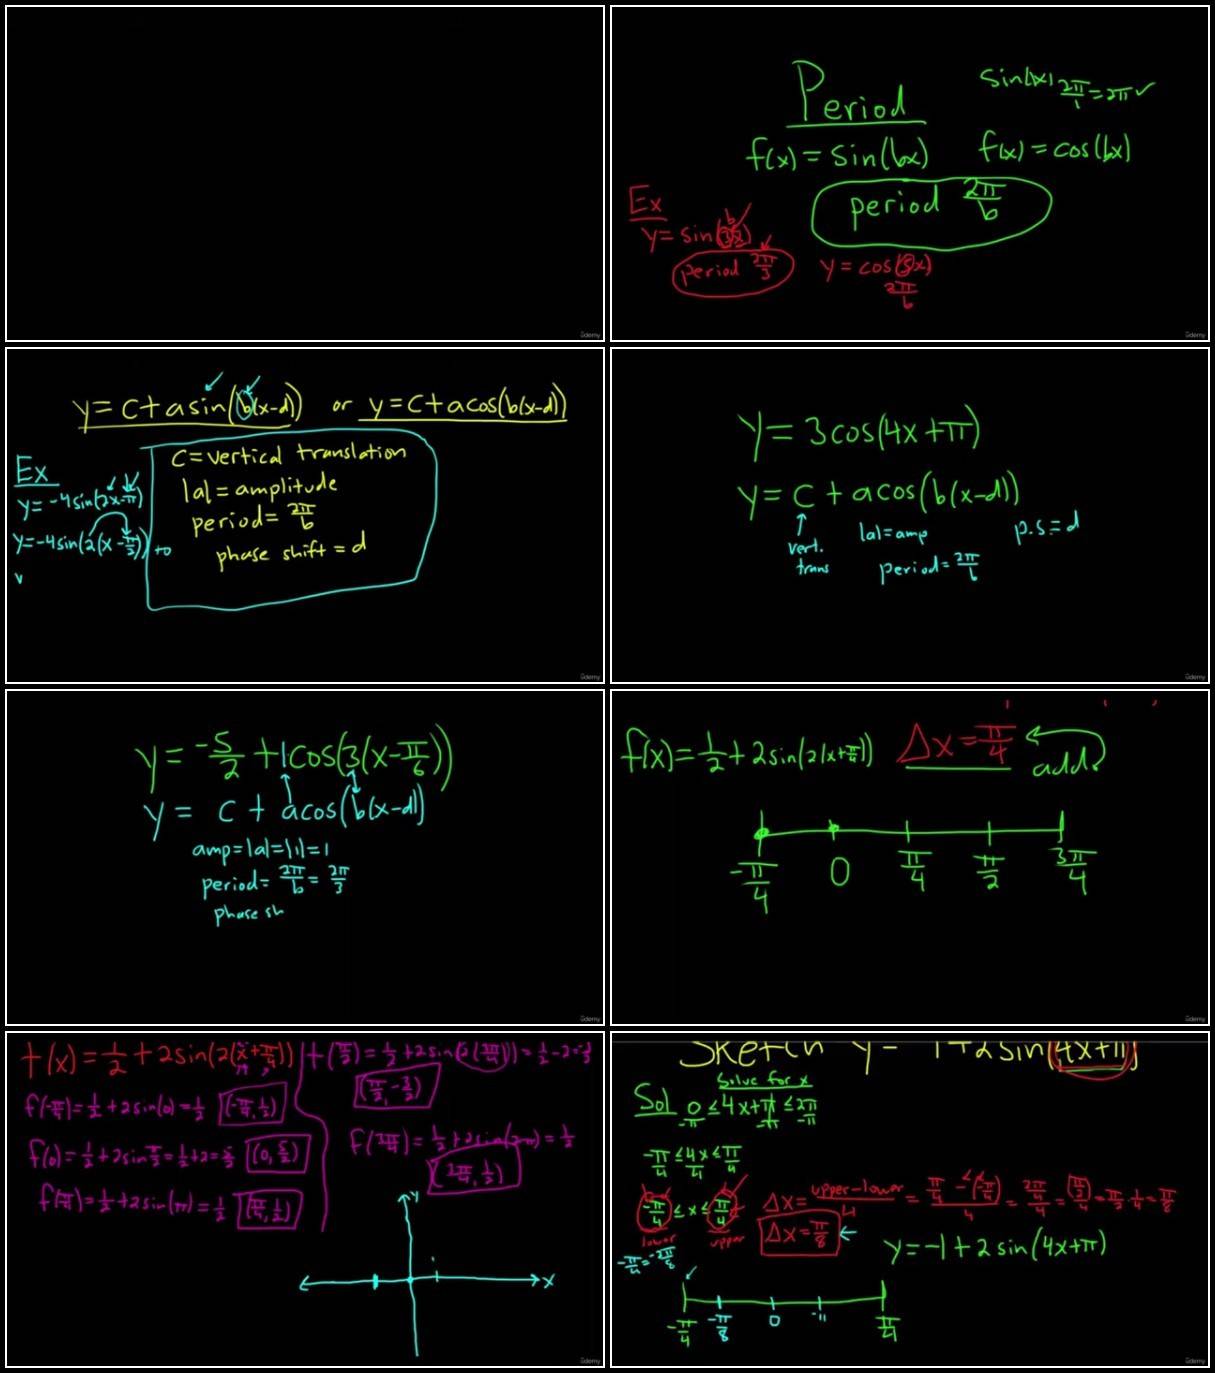 Udemy
Period
sin(x) 2π/1 = 2π ✓
f(x) = sin(bx) f(x) = cos(bx)
period 2π/b
Ex
b
y = sin(3x)
period 2π/3
y = cos(3x)
2π/b
Udemy
y = c + a sin(b(x-d)) or y = c + a cos(b(x-d))
c = vertical translation
|a| = amplitude
period = 2π/b
phase shift = d
Ex
y = -4 sin(2x-π)
y = -4 sin(2(x - π/2)) to
Udemy
y = 3cos(4x+π)
y = c + a cos(b(x-d))
vert. trans
|a| = amp
p.s. = d
period = 2π/b
Udemy
y = -5/2 + 1cos(3(x-π/6))
y = c + a cos(b(x-d))
amp = |a| = |1| = 1
period = 2π/b = 2π/3
phase sh
Udemy
f(x) = 1/2 + 2sin(2(x+π/4)) Δx = π/4 add
-π/4 0 π/4 π/2 3π/4
Udemy
f(x) = 1/2 + 2sin(2(x+π/4))
f(-π/4) = 1/2 + 2sin(0) = 1/2 (-π/4, 1/2)
f(0) = 1/2 + 2sin π/2 = 1/2 + 2 = 5/2 (0, 5/2)
f(π/4) = 1/2 + 2sin(π) = 1/2 (π/4, 1/2)
f(π/2) = 1/2 + 2sin(2(3π/4)) = 1/2 - 2 = -3/2
(π/2, -3/2)
f(3π/4) = 1/2 + 2sin(2π) = 1/2
(3π/4, 1/2)
y
x
Udemy
Sketch y = -1+2sin(4x+π)
Solve for x
Sol 0 ≤ 4x+π ≤ 2π
-π -π -π
-π/4 ≤ 4x/4 ≤ π/4
-π/4 ≤ x ≤ π/4
lower upper
Δx = upper-lower/4 = π/4 - (-π/4)/4 = 2π/4/4 = π/2/4 = π/2 · 1/4 = π/8
Δx = π/8
-π/4 = -2π/8
y = -1 + 2 sin(4x+π)
-π/4 -π/8 0 π/4
Udemy